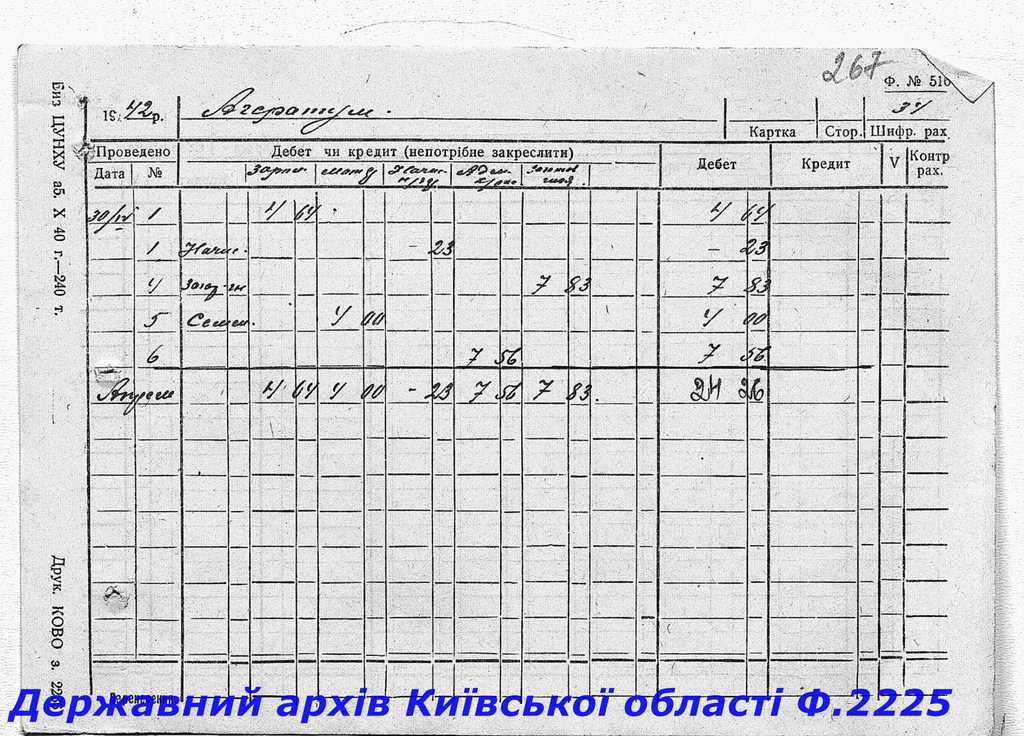 267
Ф. № 516
1942 р. Агератум. 34
Картка Стор. Шифр. рах
Проведено Дебет чи кредит (непотрібне закреслити) Дебет Кредит V Контр рах.
Дата №
30/IV 1 4 64 4 64
1 Начис. - 23 - 23
4 7 83 7 83
5 Семен. 4 00 4 00
6 7 56 7 56
Апрель 4 64 4 00 - 23 7 56 7 83 24 26
Биз ЦУНХУ аб. X 40 г.—240 т.
Друк. КОВО з. 22
Державний архів Київської області Ф.2225